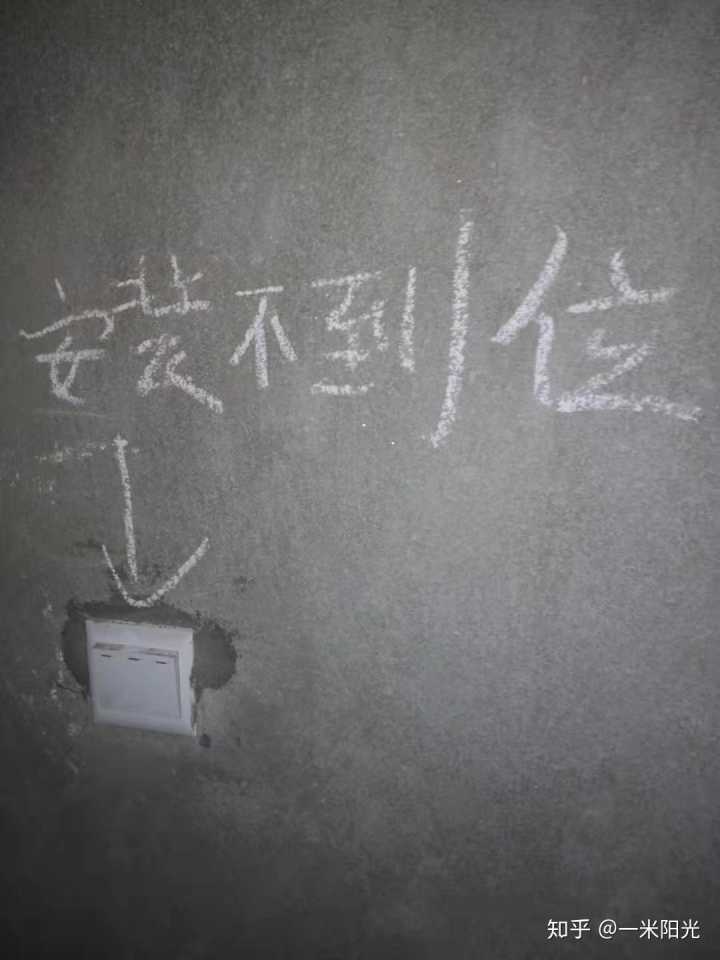 安装不到位
知乎 @一米阳光